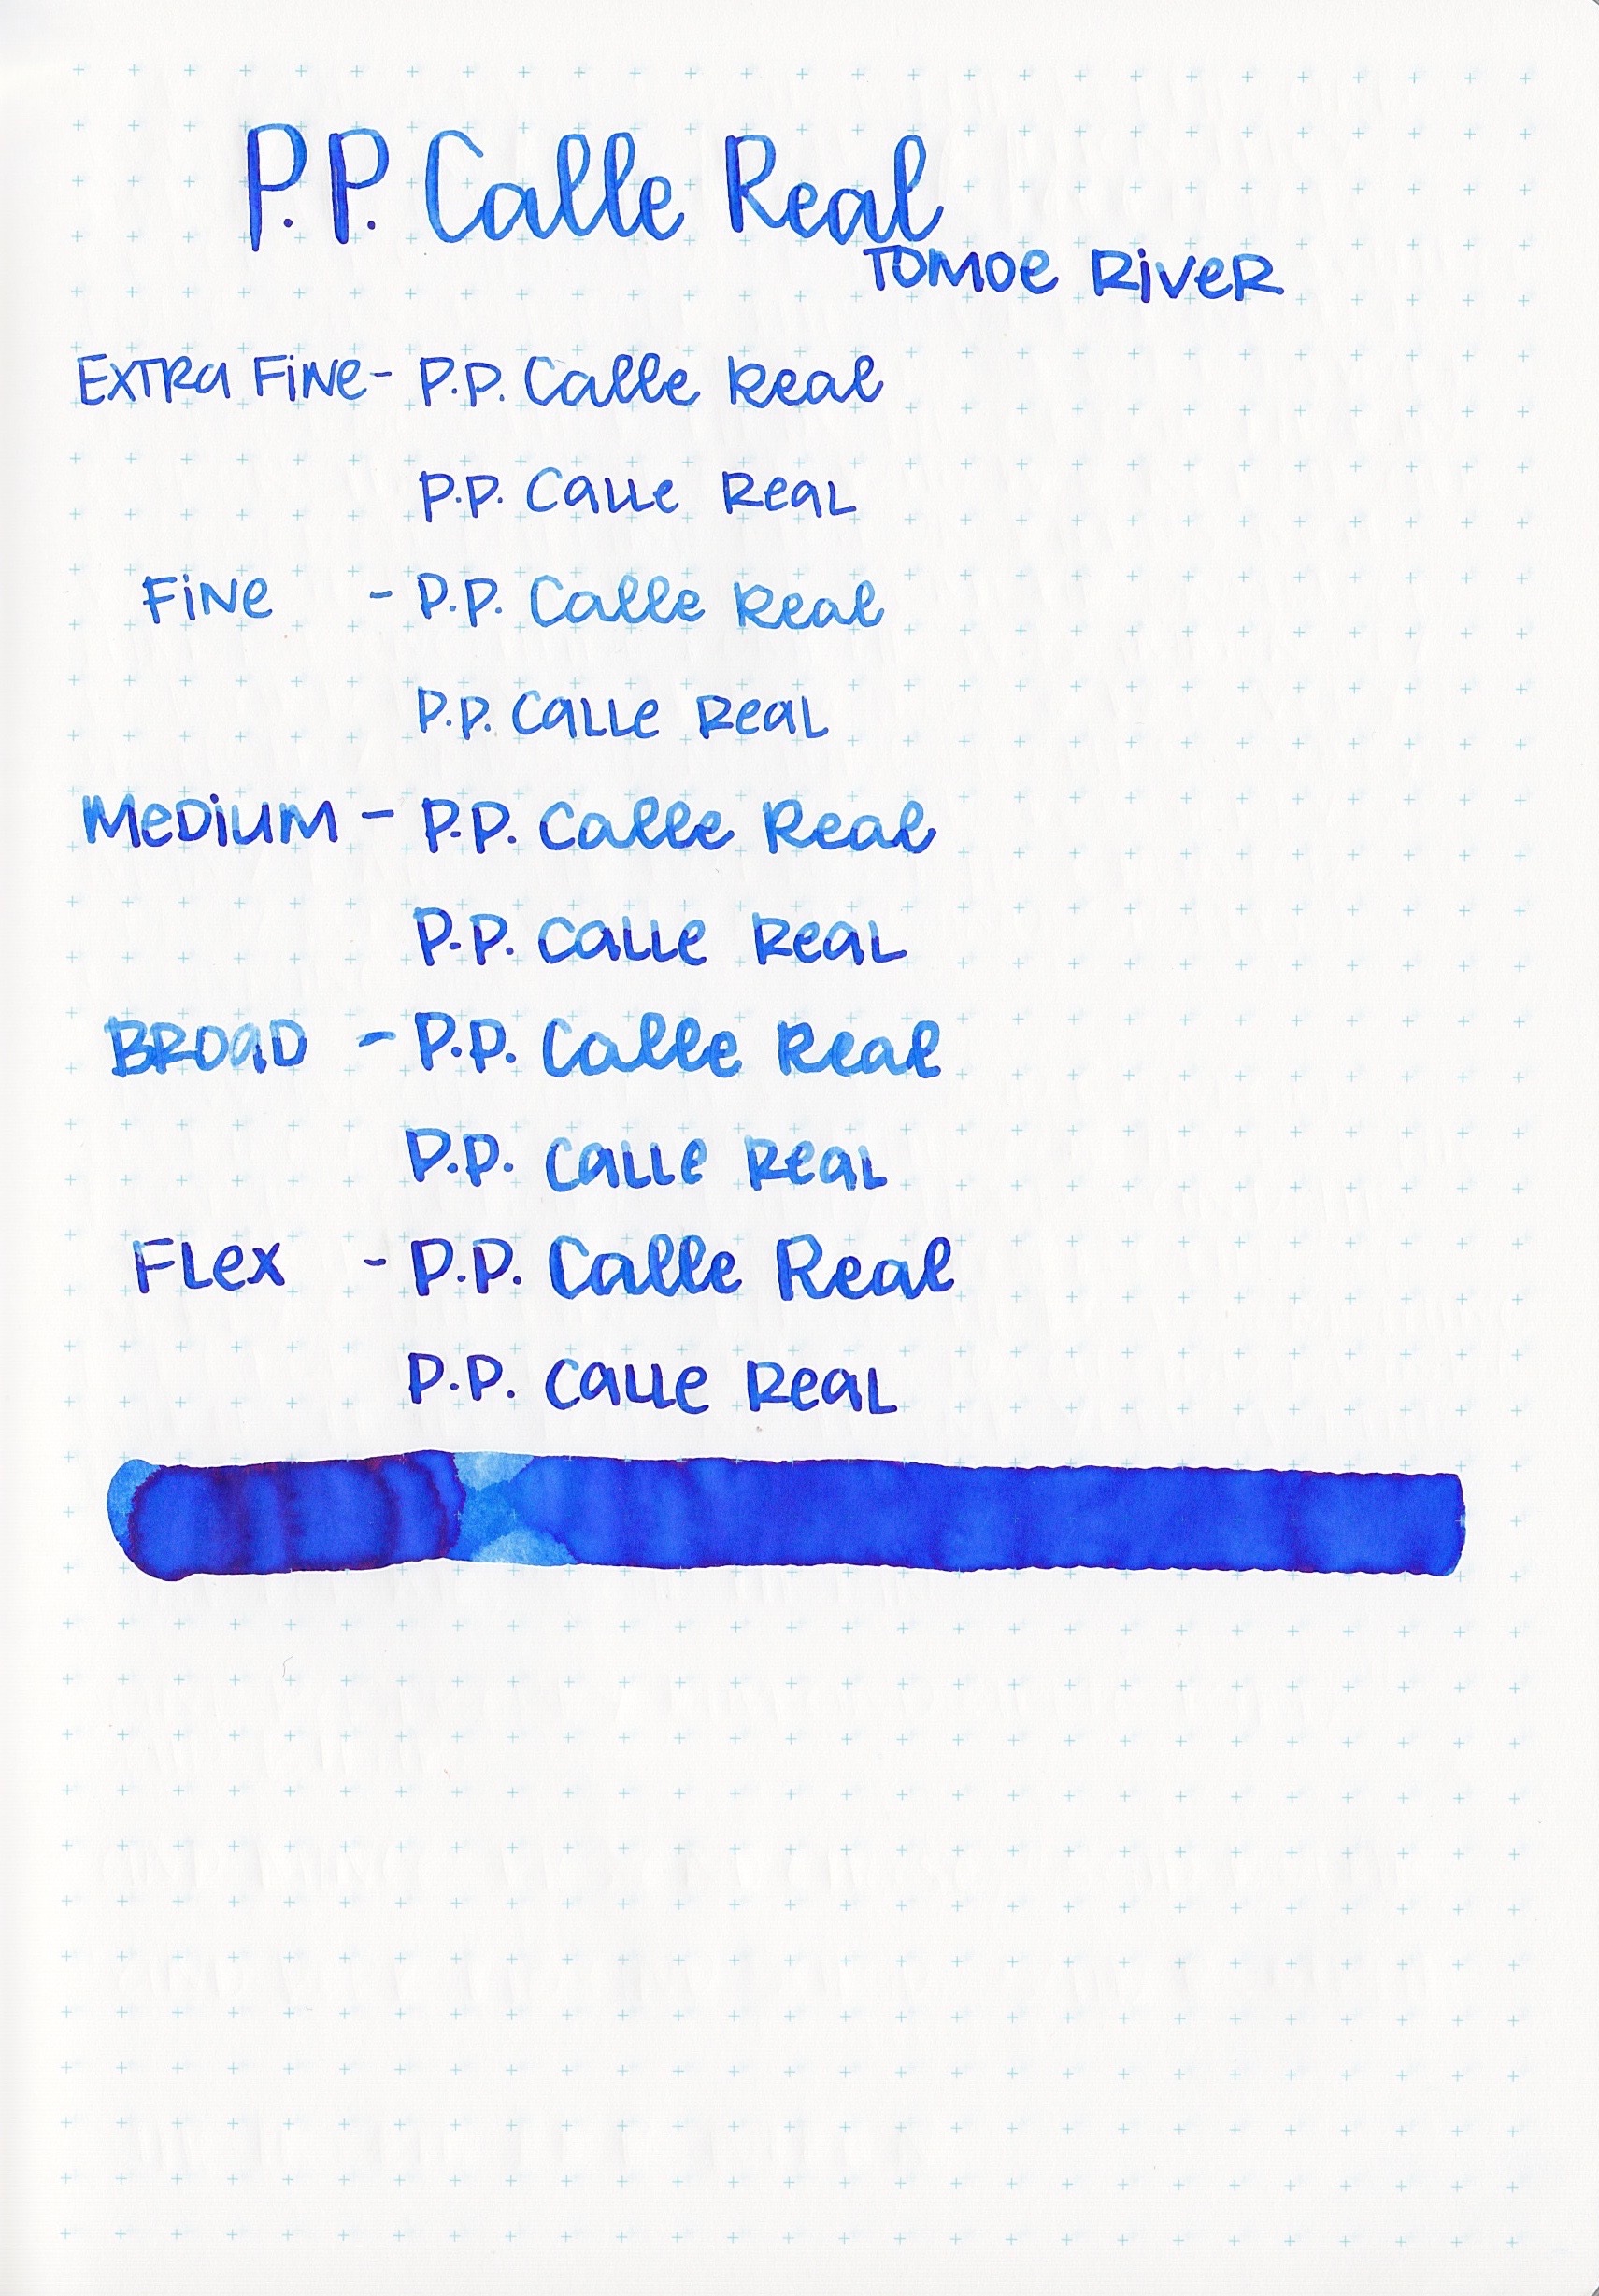 P.P. Calle Real
Tomoe River
Extra Fine - P.P. Calle Real
P.P. Calle Real
Fine - P.P. Calle Real
P.P. Calle Real
Medium - P.P. Calle Real
P.P. Calle Real
Broad - P.P. Calle Real
P.P. Calle Real
Flex - P.P. Calle Real
P.P. Calle Real